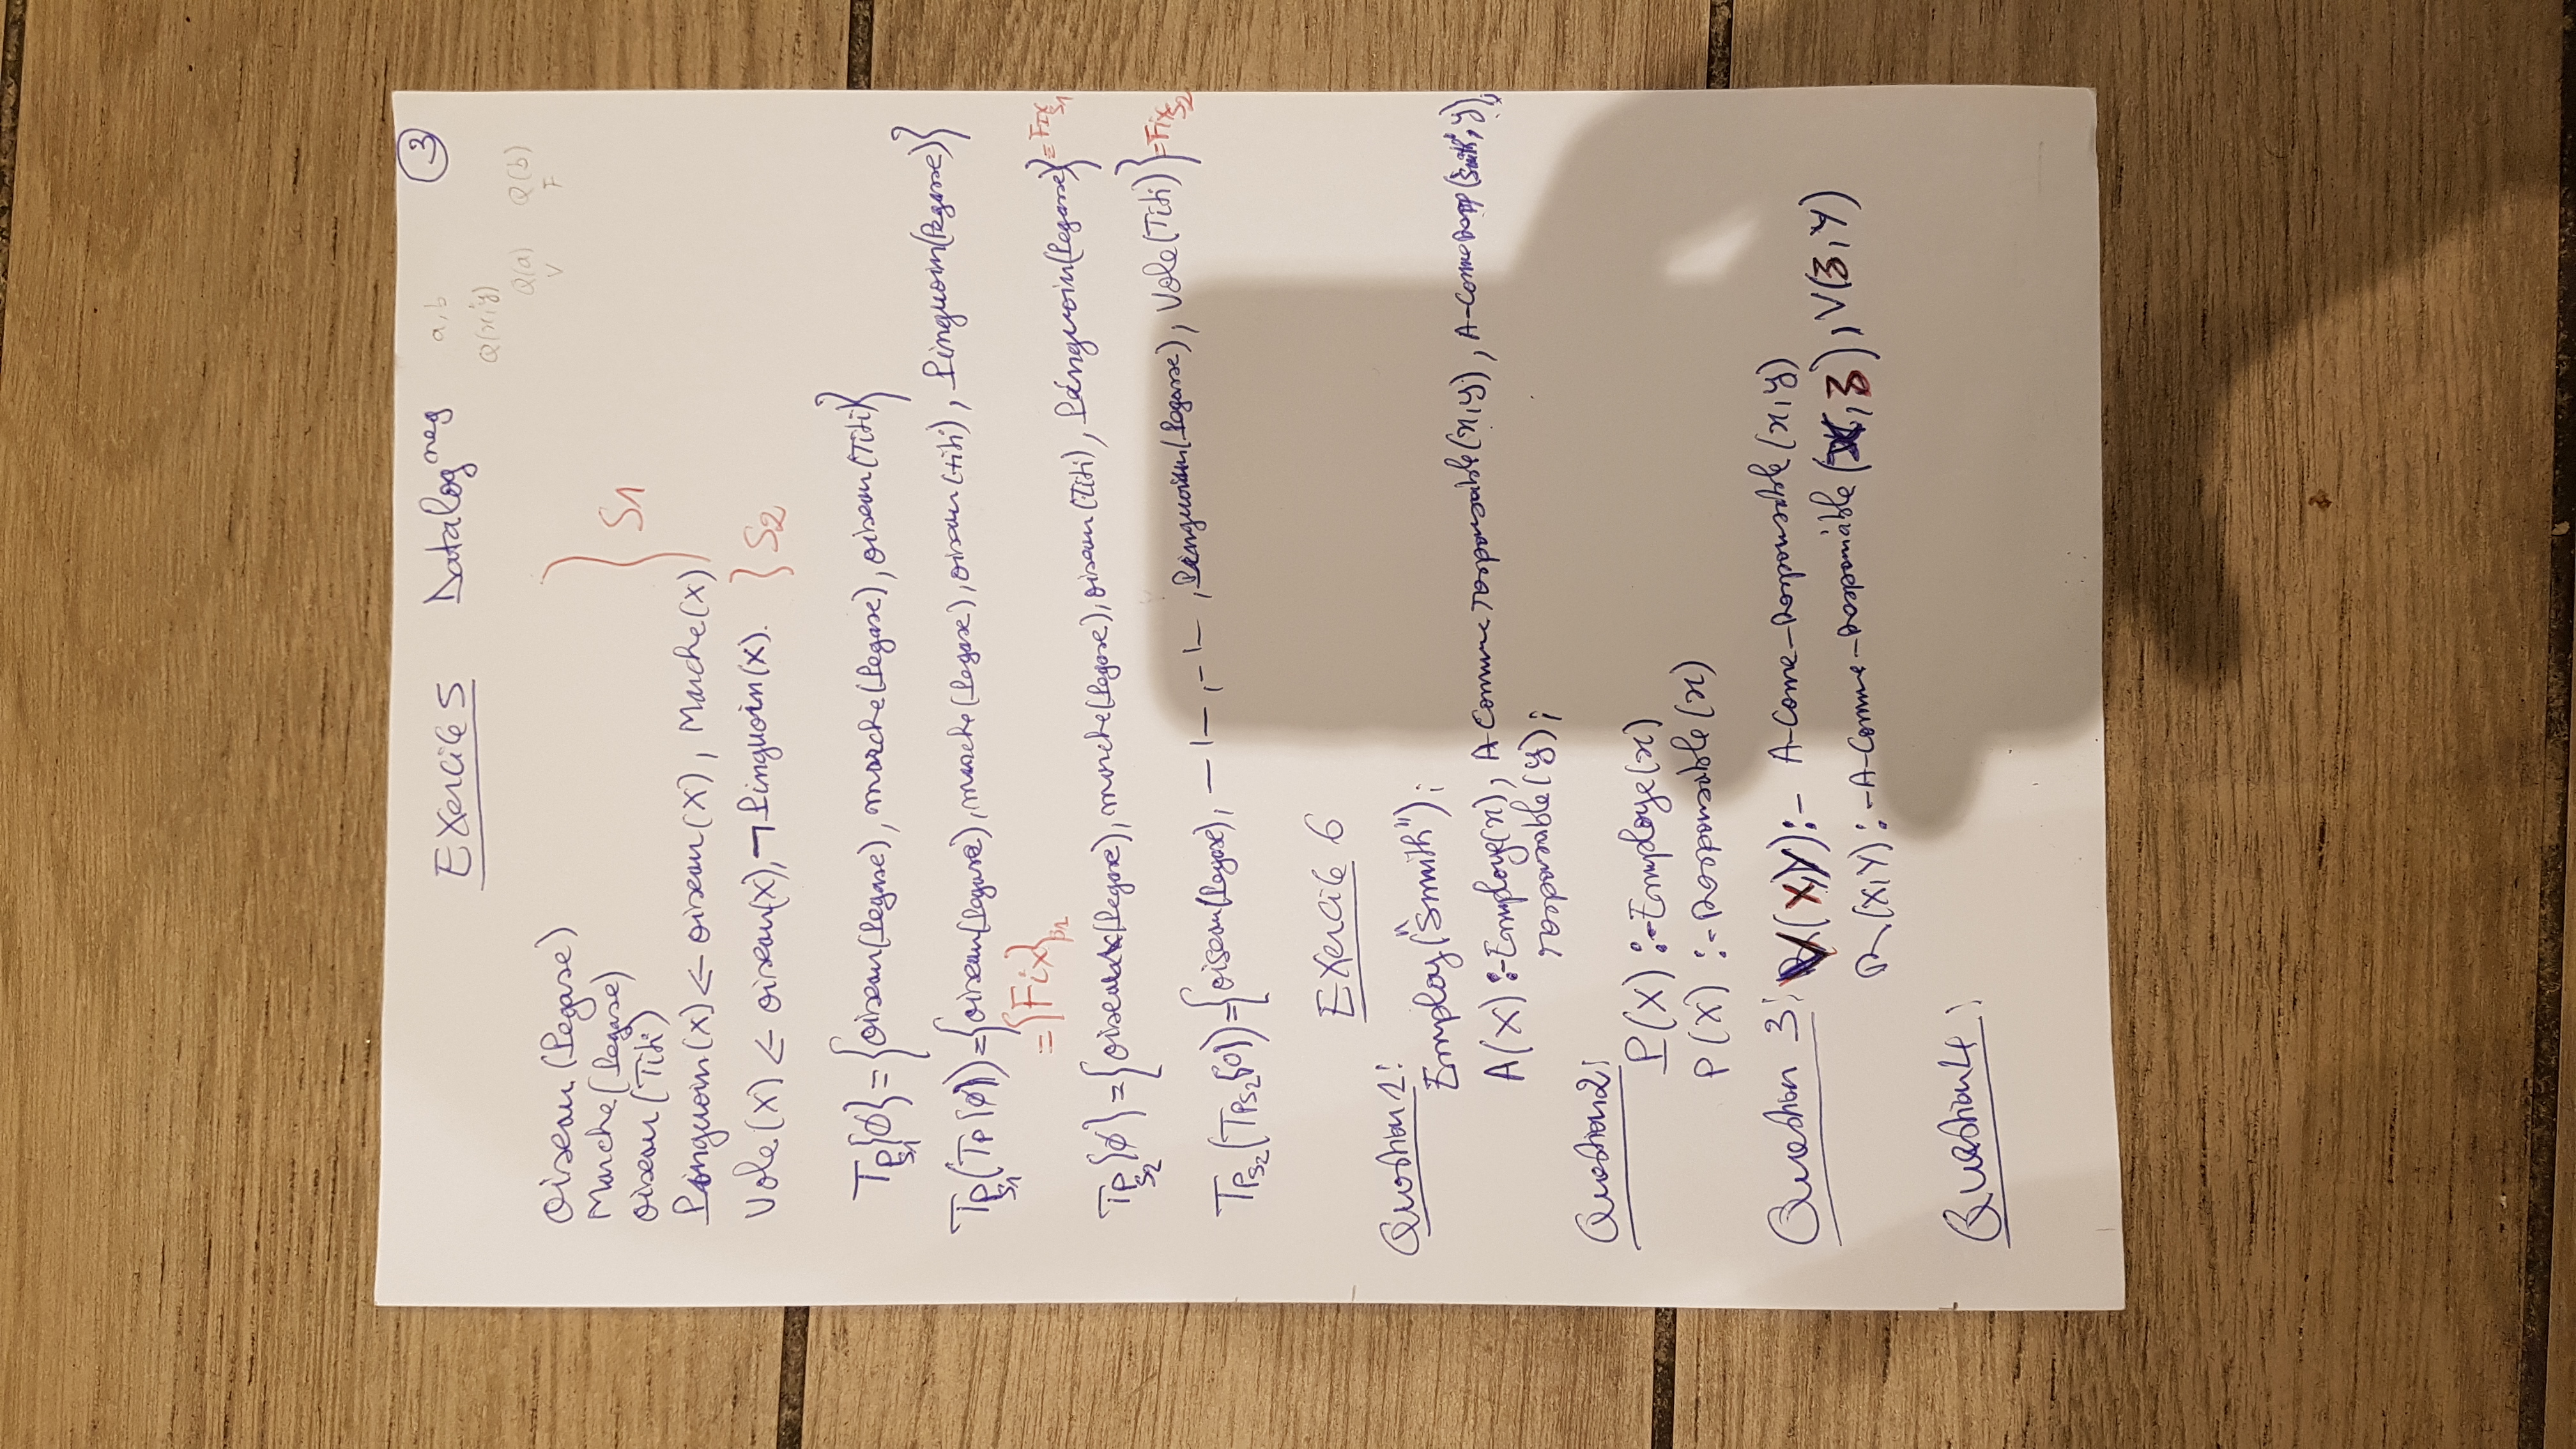 Exercice 5 Datalog neg 3
a, b
Q(x,y)
Q(a) Q(b)
V F
Oiseau (Pegase)
Marche (Pegase)
oiseau (Titi)
Pinguoin(X) ← oiseau(X), Marche(X)
} S1
Vole(X) ← oiseau(X), ¬Pinguoin(X). } S2
TP S1 {∅} = {oiseau(Pegase), marche(Pegase), oiseau(Titi)}
TP S1 (TP{∅}) = {oiseau(Pegase), marche(Pegase), oiseau(titi), Pinguoin(Pegasse)}
= {Fix} S1
TP S2 {∅} = {oiseau(Pegase), marche(Pegase), oiseau(Titi), Pinguoin(Pegasse)} = Fix S1
TP S2 (TP S2 {∅}) = {oiseau(Pegase), —|—, -|—, Pinguoin(Pegasse), Vole(Titi)} = Fix S2
Exercice 6
Question 1:
Employ("Smith");
A(X) :- Employe(x), A-Comme responsable(x,y), A-Comme Resp("Smith", y),
responsable(y);
Question 2:
P(X) :- Employe(x)
P(X) :- Responsable(x)
Question 3: V(X,Y) :- A-Come-Responsable(x,y)
R(X,Y) :- A-Comme-Responsable(X,3), V(3,Y)
Question 4: